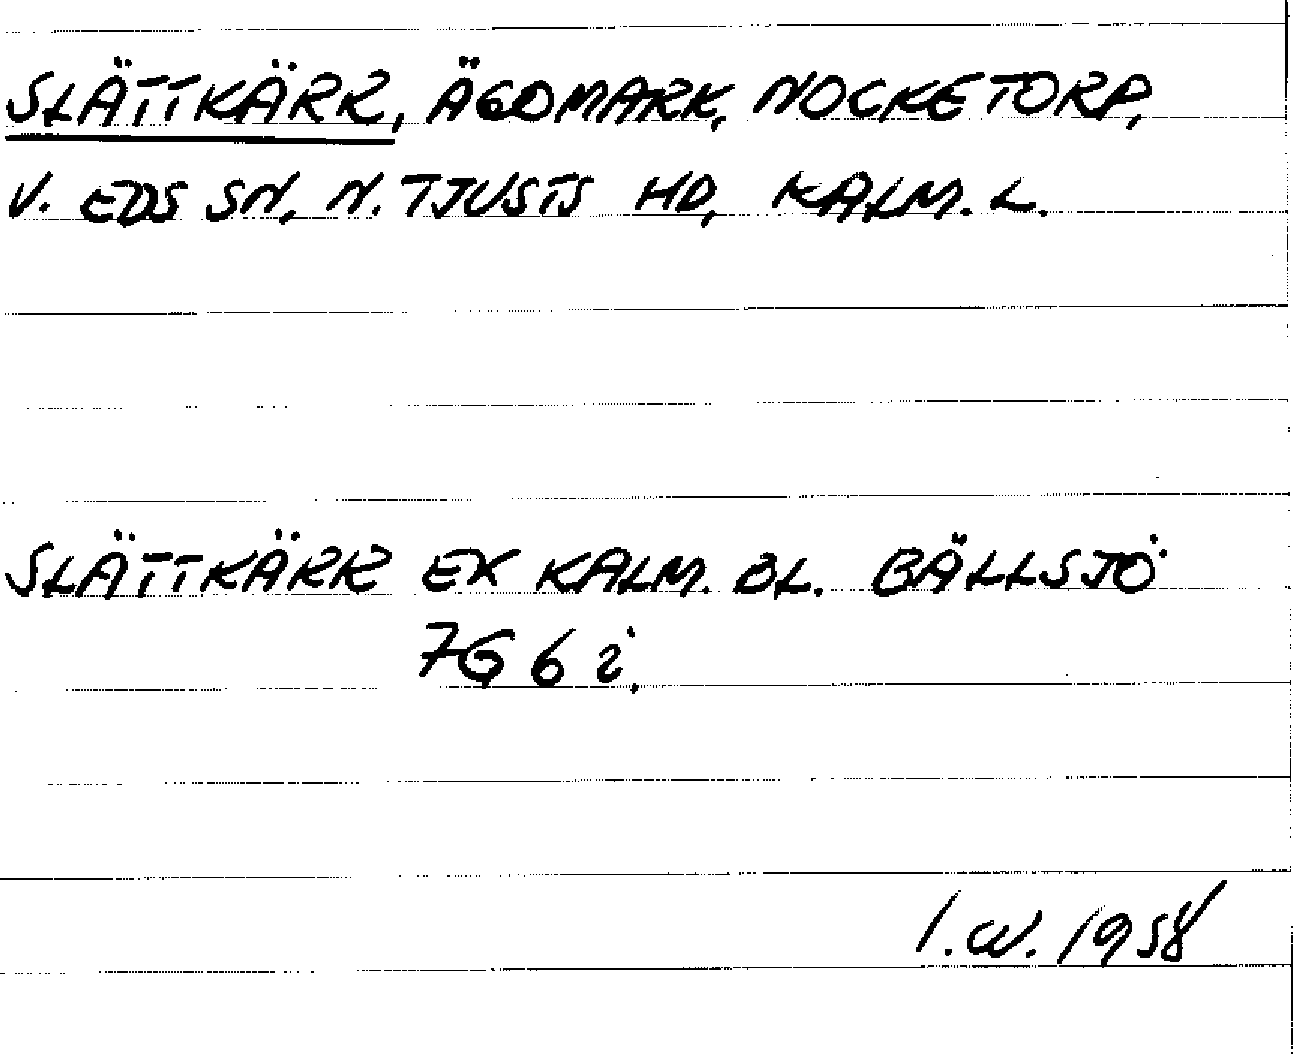 SLÄTTKÄRR, ÄGOMARK, NOCKETORP,
V. EDS SN, N. TJUSTS HD, KALM. L.
SLÄTTKÄRR EK KALM. BL. BÄLLSJÖ
7G 6 i.
I.W. 1958